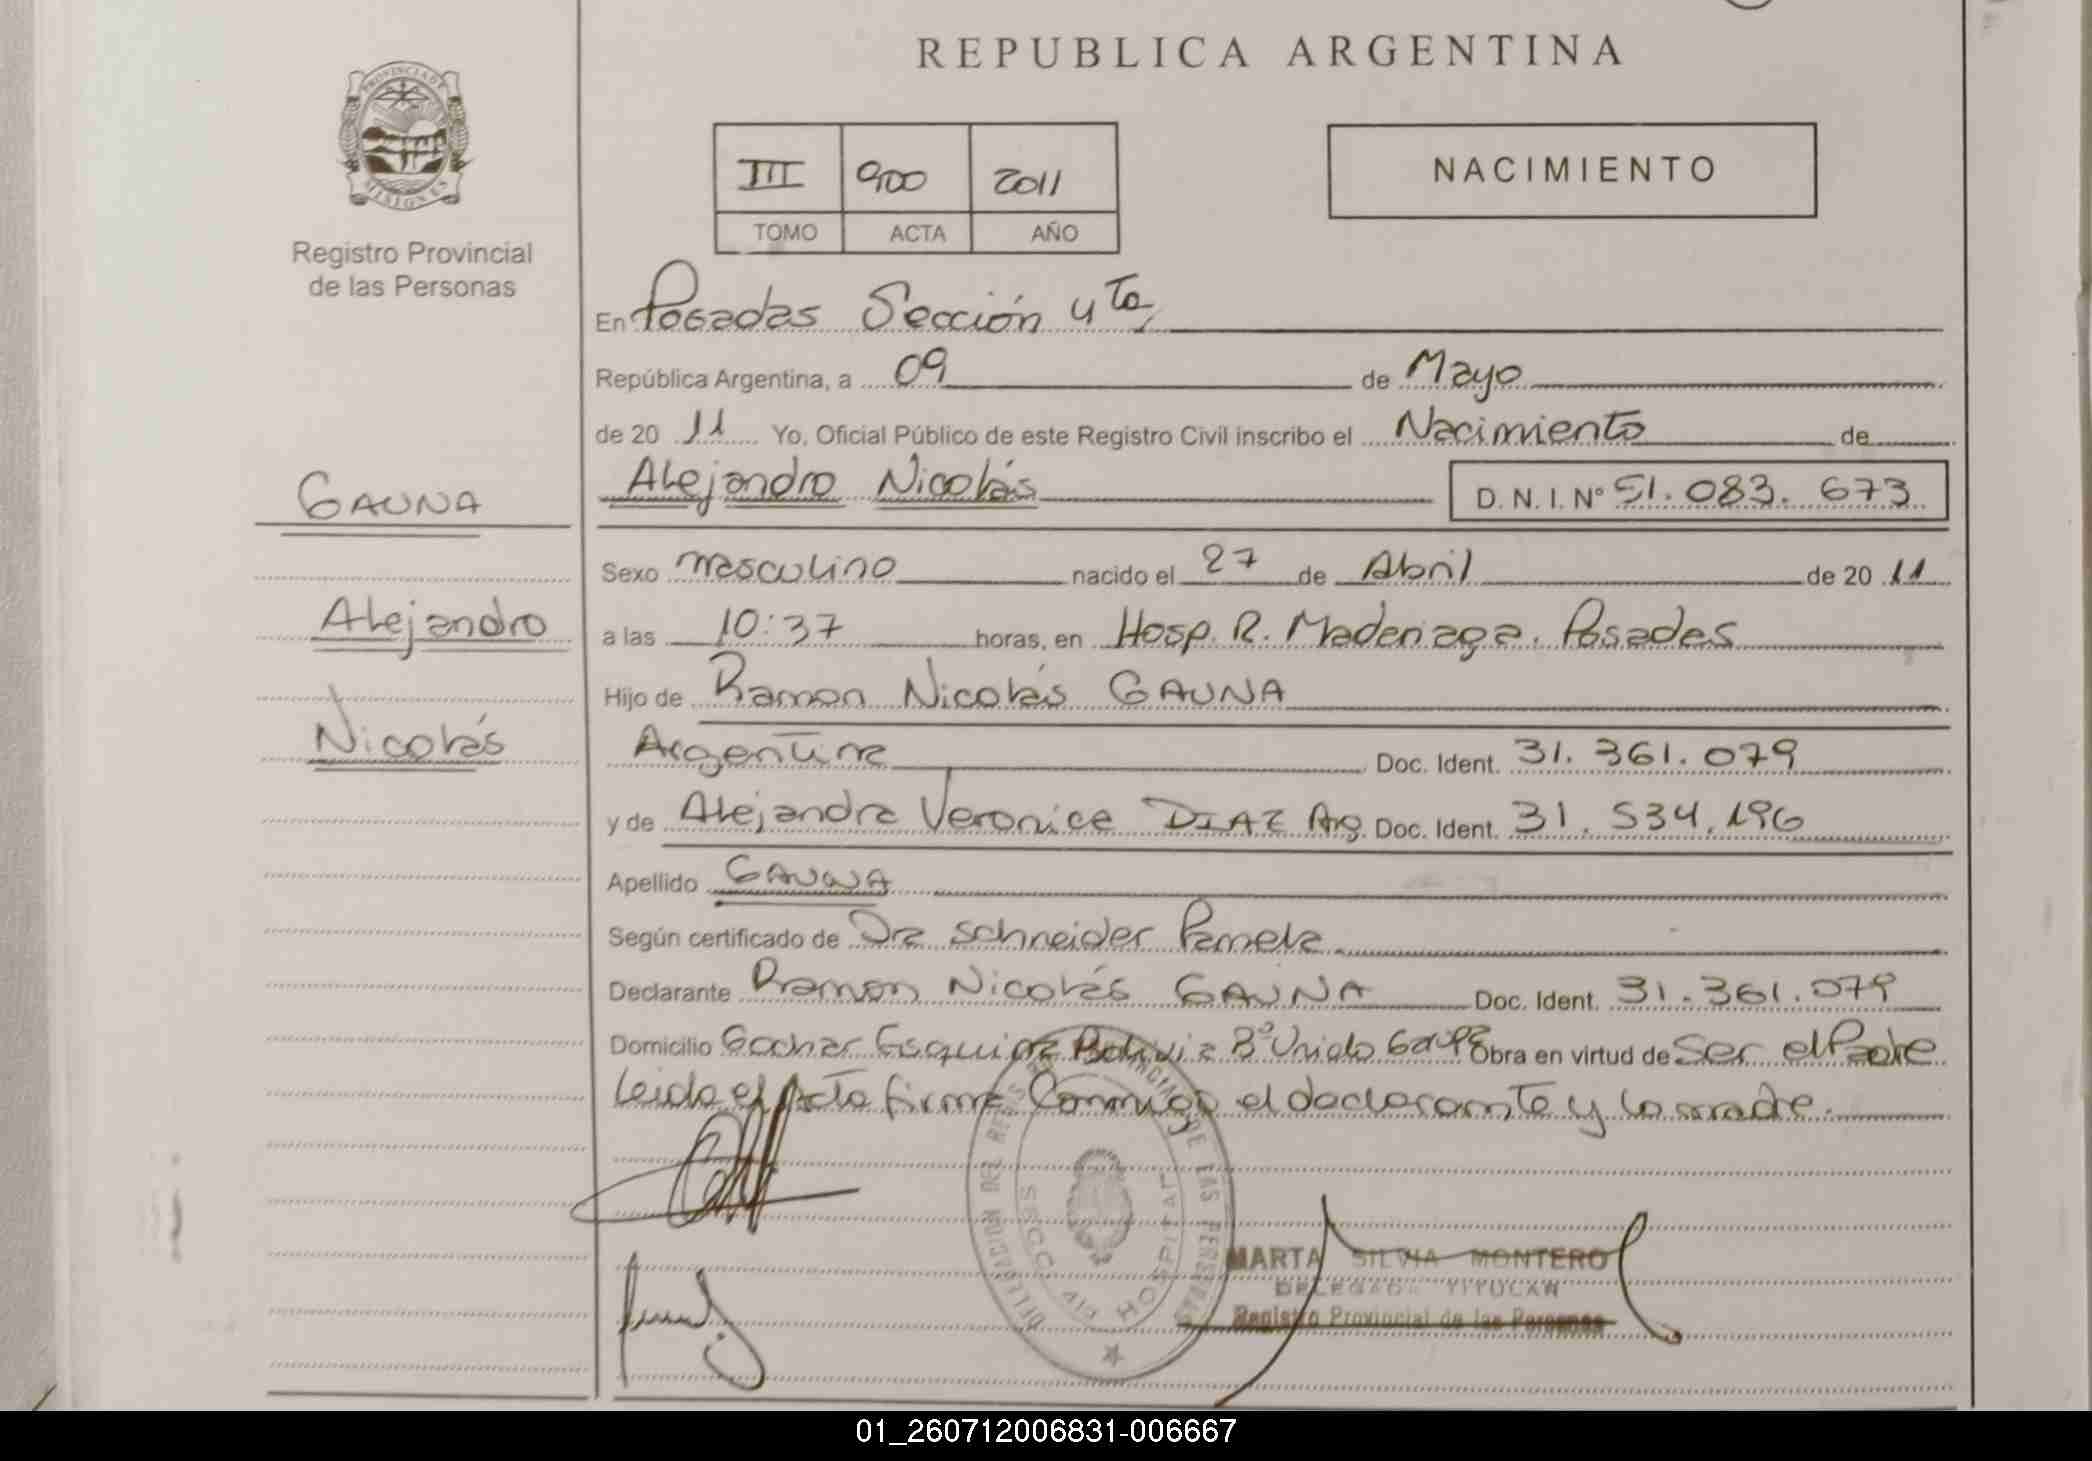 REPUBLICA ARGENTINA
PROVINCIA DE MISIONES
Registro Provincial
de las Personas
III 900 2011
TOMO ACTA AÑO
NACIMIENTO
En Posadas Sección 4ta,
República Argentina, a 09 de Mayo
de 20 11 Yo, Oficial Público de este Registro Civil inscribo el Nacimiento de
Alejandro Nicolás D. N. I. Nº 51.083.673
GAUNA
Alejandro
Nicolás
Sexo masculino nacido el 27 de Abril de 20 11
a las 10:37 horas, en Hosp. R. Madariaga. Posadas
Hijo de Ramon Nicolás GAUNA
Argentina Doc. Ident. 31.361.079
y de Alejandra Veronica DIAZ Arg. Doc. Ident. 31.534.196
Apellido GAUNA
Según certificado de Dra Schneider Pamela
Declarante Ramon Nicolás GAUNA Doc. Ident. 31.361.079
Domicilio Esquina Bolivia Bº Unido Obra en virtud de Ser el Padre
Leida el Acta firma Conmigo el declarante y la madre.
DELEGACION DEL REGISTRO PROVINCIAL DE LAS PERSONAS
SECC. 4ta HOSPITAL
MARTA SILVIA MONTERO
DELEGADA TITULAR
Registro Provincial de las Personas
01_260712006831-006667